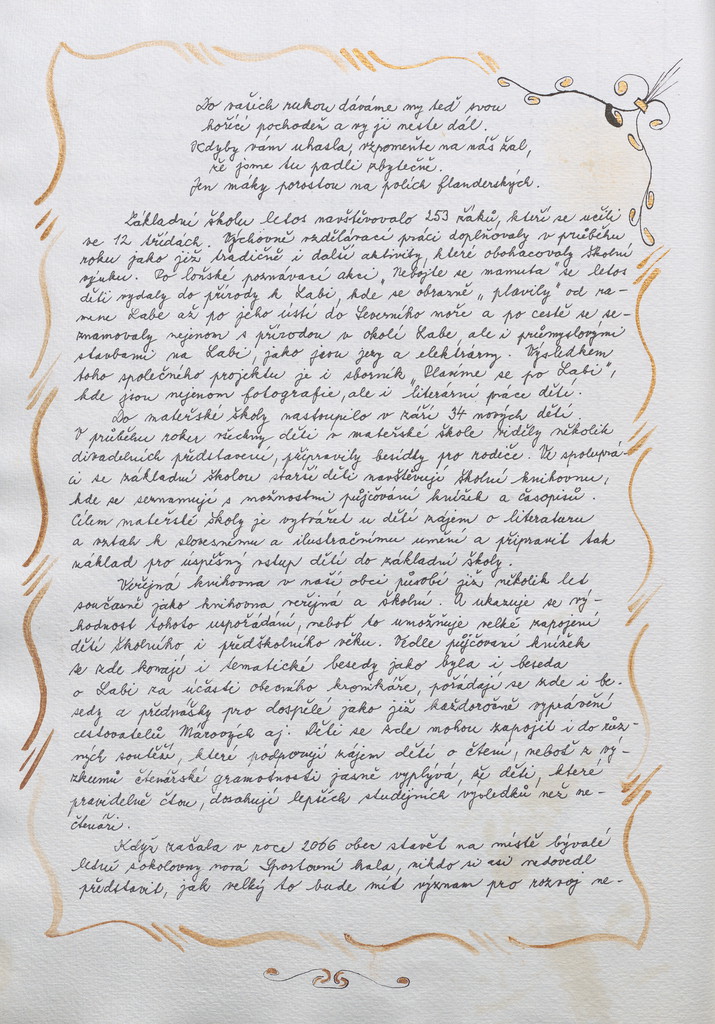 Do vašich rukou dáváme my teď svou
hořící pochodeň a vy ji neste dál.
Kdyby vám uhasla, vzpomeňte na náš žal,
že jsme tu padli zbytečně.
Jen máky porostou na polích flanderských.
Základní školu letos navštěvovalo 253 žáků, kteří se učili
ve 12 třídách. Výchovně vzdělávací práci doplňovaly v průběhu
roku jako již tradičně i další aktivity, které obohacovaly školní
výuku. Po loňské poznávací akci „Nebojte se mamuta" se letos
děti vydaly do přírody k Labi, kde se obrazně „plavily" od pra-
mene Labe až po jeho ústí do Severního moře a po cestě se se-
znamovaly nejenom s přírodou v okolí Labe, ale i průmyslovými
stavbami na Labi, jako jsou jezy a elektrárny. Výsledkem
toho společného projektu je i sborník „Plavíme se po Labi",
kde jsou nejenom fotografie, ale i literární práce dětí.
Do mateřské školy nastoupilo v září 34 nových dětí.
V průběhu roku všechny děti v mateřské škole viděly několik
divadelních představení, připravily besídky pro rodiče. Ve spoluprá-
ci se základní školou starší děti navštěvují školní knihovnu,
kde se seznamují s možnostmi půjčování knížek a časopisů.
Cílem mateřské školy je vytvářet u dětí zájem o literaturu
a vztah k slovesnému a ilustračnímu umění a připravit tak
základ pro úspěšný vstup dětí do základní školy.
Veřejná knihovna v naší obci působí již několik let
současně jako knihovna veřejná a školní. A ukazuje se vý-
hodnost tohoto uspořádání, neboť to umožňuje velké zapojení
dětí školního i předškolního věku. Vedle půjčování knížek
se zde konají i tematické besedy jako byla i beseda
o Labi za účasti obecního kronikáře, pořádají se zde i be-
sedy a přednášky pro dospělé jako již každoročně vyprávění
cestovatelů Márových aj. Děti se zde mohou zapojit i do růz-
ných soutěží, které podporují zájem dětí o čtení, neboť z vý-
zkumů čtenářské gramotnosti jasně vyplývá, že děti, které
pravidelně čtou, dosahují lepších studijních výsledků než ne-
čtenáři.
Když začala v roce 2006 obec stavět na místě bývalé
letní sokolovny nová Sportovní hala, nikdo si asi nedovedl
představit, jak velký to bude mít význam pro rozvoj ne-
26